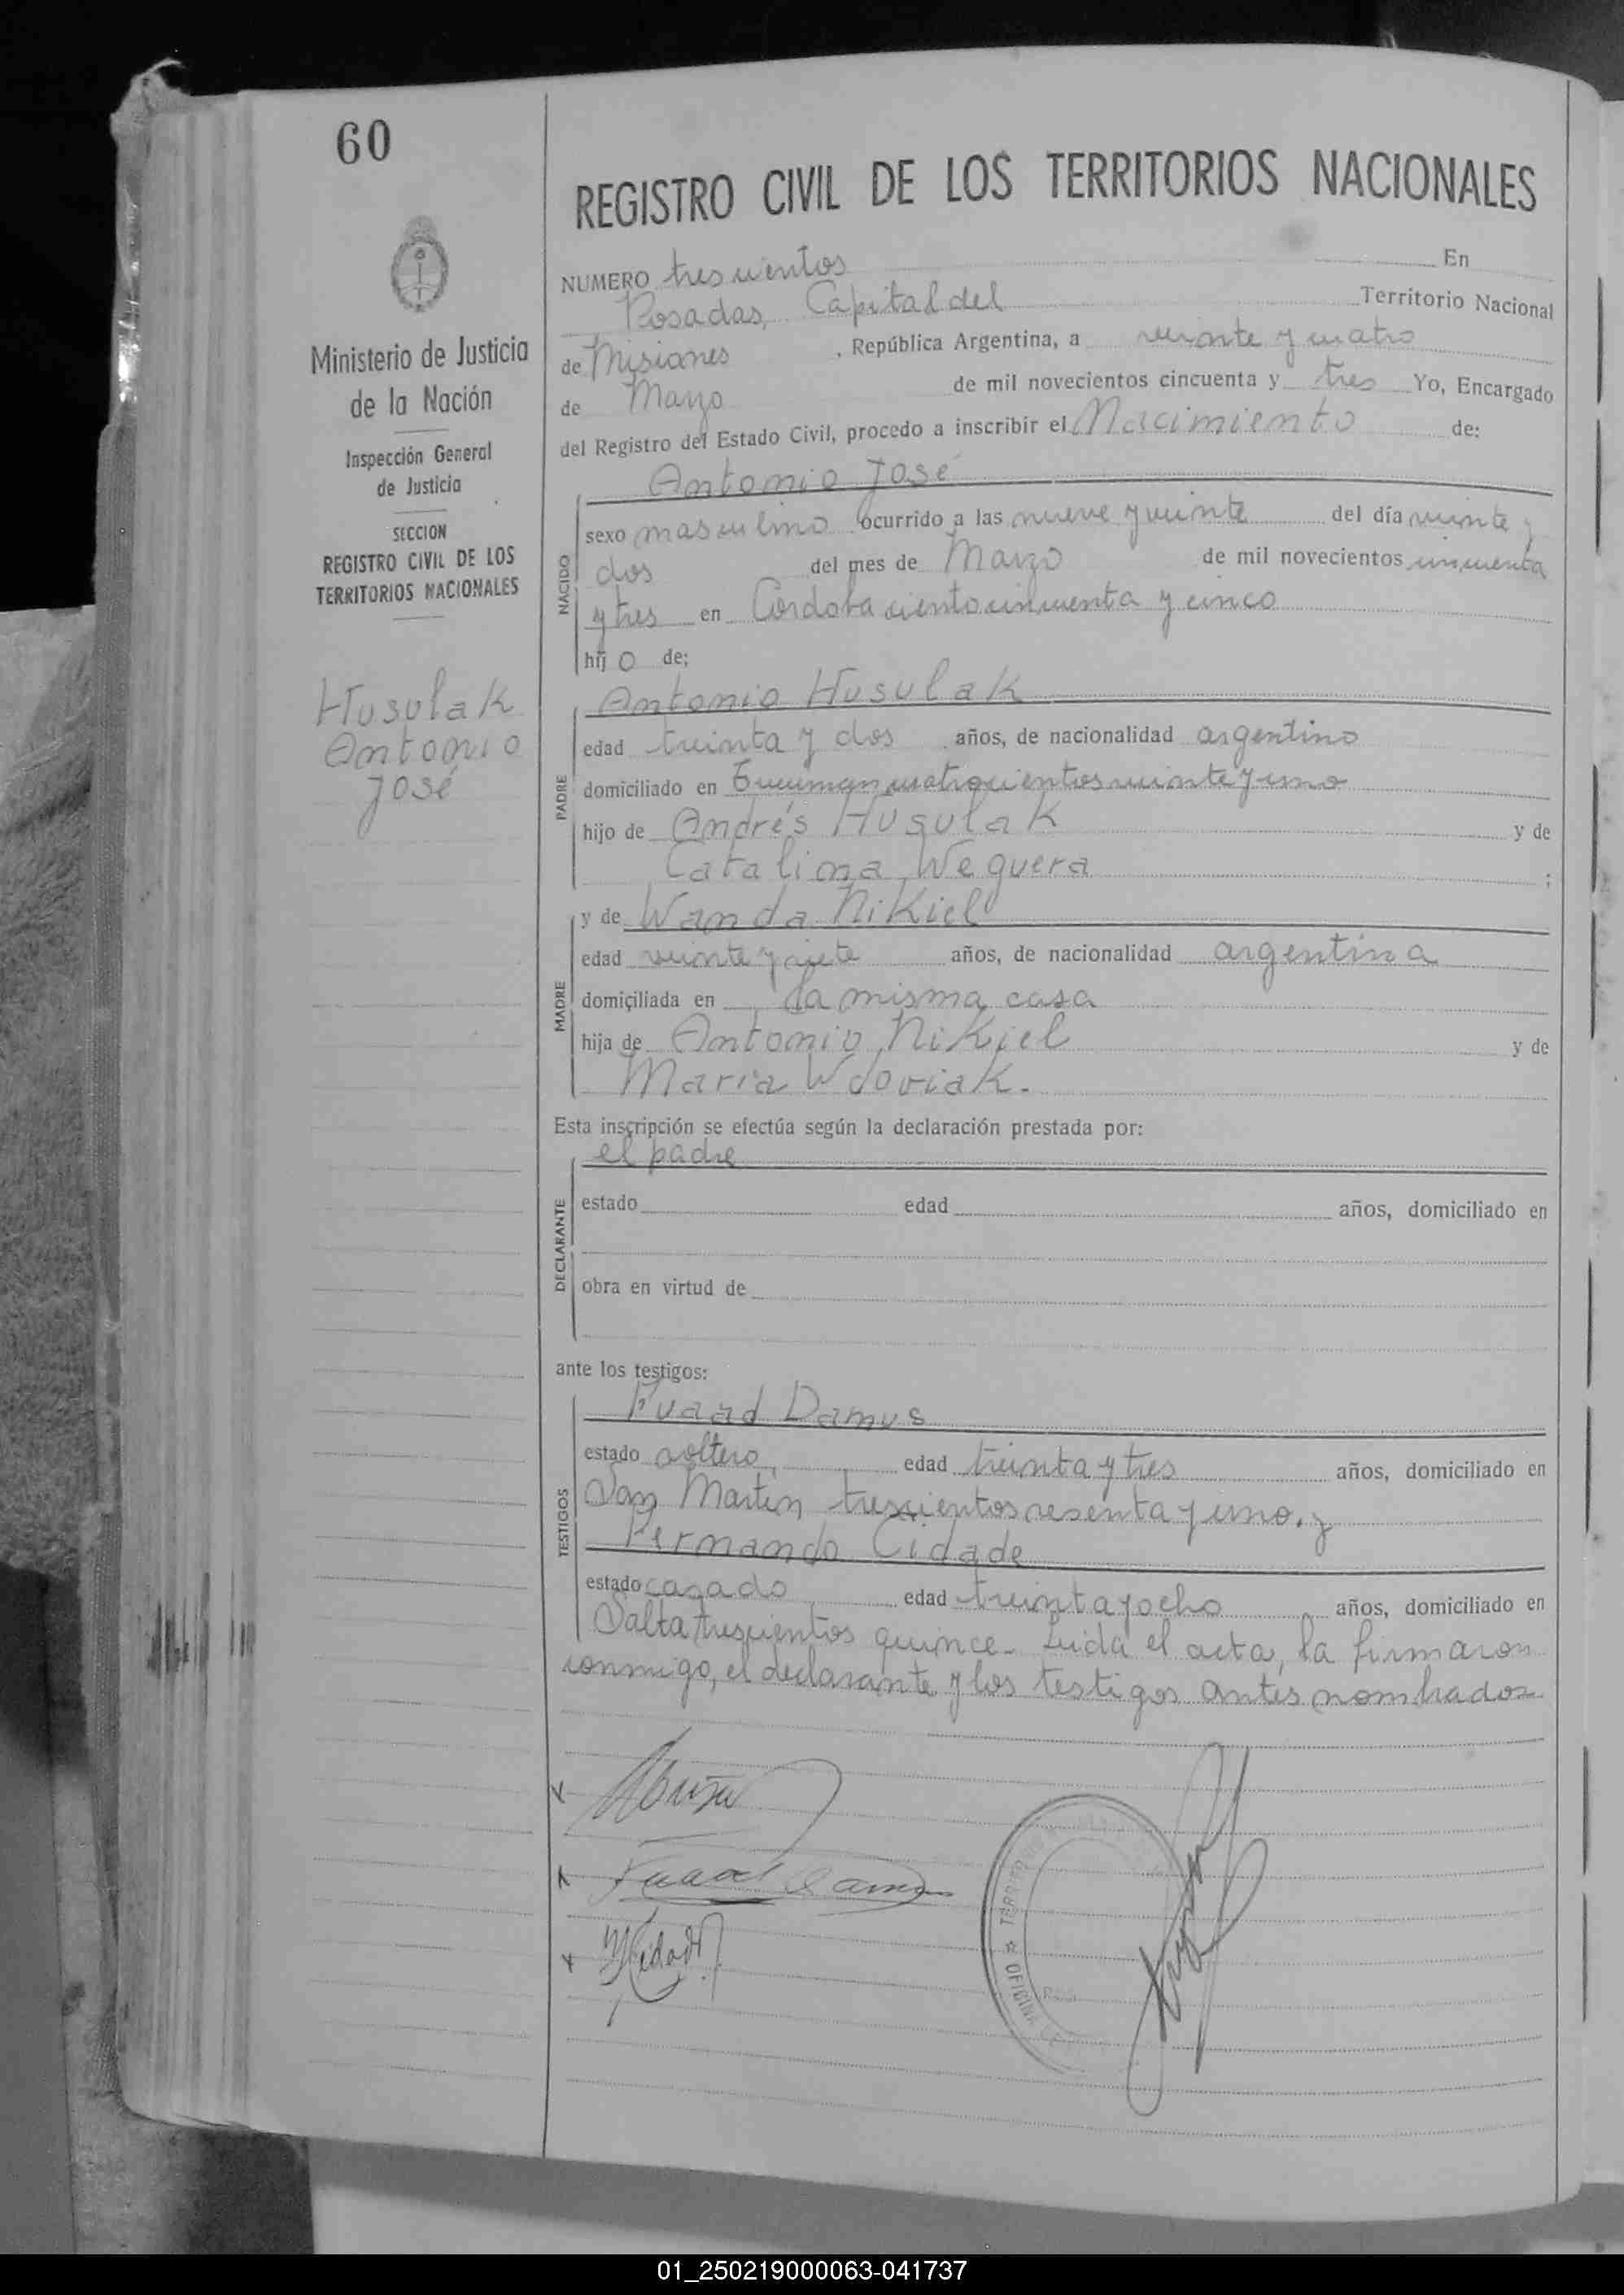 60
REGISTRO CIVIL DE LOS TERRITORIOS NACIONALES
Ministerio de Justicia
de la Nación
Inspección General
de Justicia
SECCION
REGISTRO CIVIL DE LOS
TERRITORIOS NACIONALES
Husulak
Antonio
José
NUMERO trescientos En
Posadas, Capital del Territorio Nacional
de Misiones, República Argentina, a veinte y cuatro
de Marzo de mil novecientos cincuenta y tres Yo, Encargado
del Registro del Estado Civil, procedo a inscribir el Nacimiento de:
Antonio José
NACIDO
sexo masculino ocurrido a las nueve y veinte del día veinte y
dos del mes de Marzo de mil novecientos cincuenta
y tres en Cordoba ciento cincuenta y cinco
hijo de:
Antonio Husulak
PADRE
edad treinta y dos años, de nacionalidad argentino
domiciliado en Tucuman cuatrocientos veinte y uno
hijo de Andrés Husulak y de
Catalina Weguera ;
y de Wanda Nikiel
MADRE
edad veinte y siete años, de nacionalidad argentina
domiciliada en la misma casa
hija de Antonio Nikiel y de
Maria Wdoviak.
Esta inscripción se efectúa según la declaración prestada por:
el padre
DECLARANTE
estado edad años, domiciliado en
obra en virtud de
ante los testigos:
Fuaad Damus
TESTIGOS
estado soltero, edad treinta y tres años, domiciliado en
San Martin trescientos sesenta y uno. y
Fernando Cidade
estado casado edad treinta y ocho años, domiciliado en
Salta trescientos quince. Leida el acta, la firmaron
conmigo, el declarante y los testigos antes nombrados
Fuaad Damus
TERRITORIO
OFICINA
01_250219000063-041737